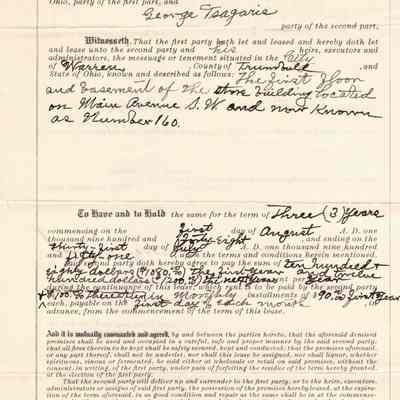 Ohio, party of the first part, and
George Tsagaris
party of the second part,
Witnesseth, That the first party doth let and leased and hereby doth let
and lease unto the second party and his heirs, executors and
administrators, the messuage or tenement situated in the City
of Warren, County of Trumbull, and
State of Ohio, known and described as follows: The first floor
and basement of the store building located
on Main Avenue S.W. and now known
as Number 160.
To Have and to Hold the same for the term of Three (3) Years
commencing on the first day of August A. D. one
thousand nine hundred and Forty-Eight, and ending on the
Thirty-first day of July A. D. one thousand nine hundred
and Fifty-one on the terms and conditions herein mentioned.
Said second party doth hereby agree to pay the sum of
eighty dollars
hundred dollars
during the continuance of this lease, which rent is to be paid by the second party
Monthly installments of $90. to first Year
each, payable on the first day of each month in
advance, from the commencement of the term of this lease.
And it is mutually covenanted and agreed, by and between the parties hereto, that the aforesaid demised
premises shall be used and occupied in a careful, safe and proper manner by the said second party;
that all fires therein to be kept shall be safely secured, kept and conducted; that the premises aforesaid,
or any part thereof, shall not be underlet, nor shall this lease be assigned, nor shall liquor, whether
spirituous, vinous or fermented, be sold either at wholesale or retail on said premises, without the
consent, in writing, of the first party, under pain of forfeiting the residue of the term hereby granted,
at the election of the first party.
That the second party will deliver up and surrender to the first party, or to the heirs, executors,
administrators or assigns of said first party, the possession of the premises hereby leased, at the expira-
tion of the term aforesaid, in as good condition and repair as the same shall be in at the commence-